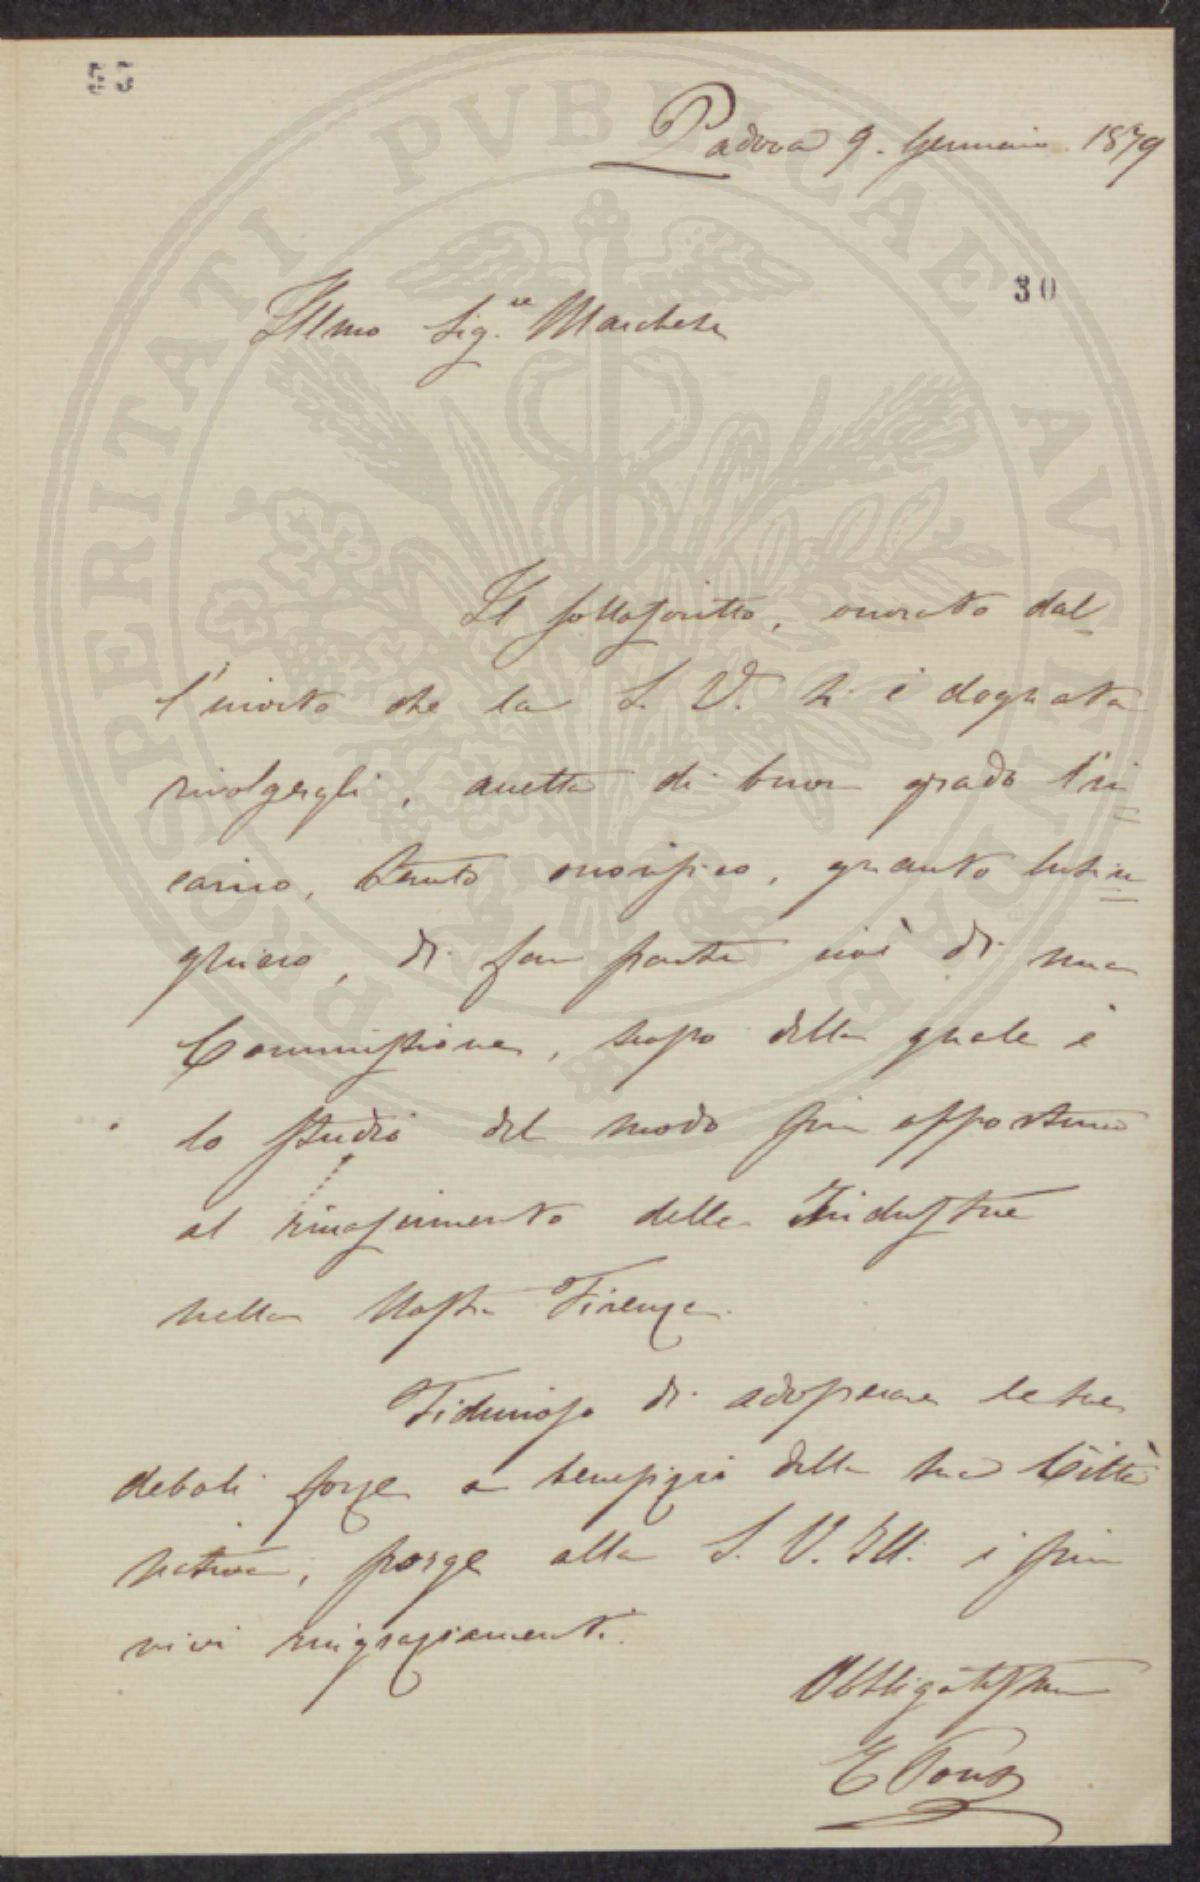 55
Padova 9. Gennaio. 1879
30
Illmo Sig.re Marchese
Il sottoscritto, onorato dal-
l'invito che la S. V. si è degnata
rivolgergli, accetta di buon grado l'in=
carico, tanto onorifico, quanto lusin=
ghiero, di far parte cioè di una
Commissione, scopo della quale è
lo studio del modo più opportuno
al rinascimento delle Industrie
nella Nostra Firenze.
Fiducioso di adoperare le sue
deboli forze a benefizio della sua Città
nativa, porge alla S. V. Ill. i più
vivi ringraziamenti.
Obbligatissimo
E
PROSPERITATI PVBLICAE AVGENDAE